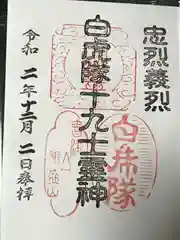 忠烈義烈
白虎隊十九士霊神
白虎隊
飯盛山
令和二年十二月二日参拝